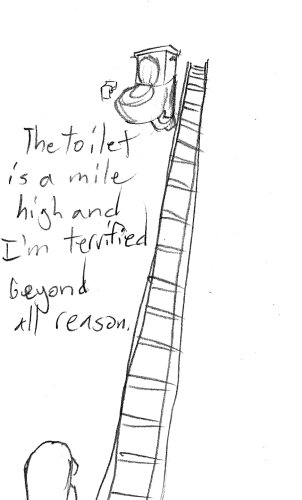 The toilet
is a mile
high and
I'm terrified
beyond
all reason.